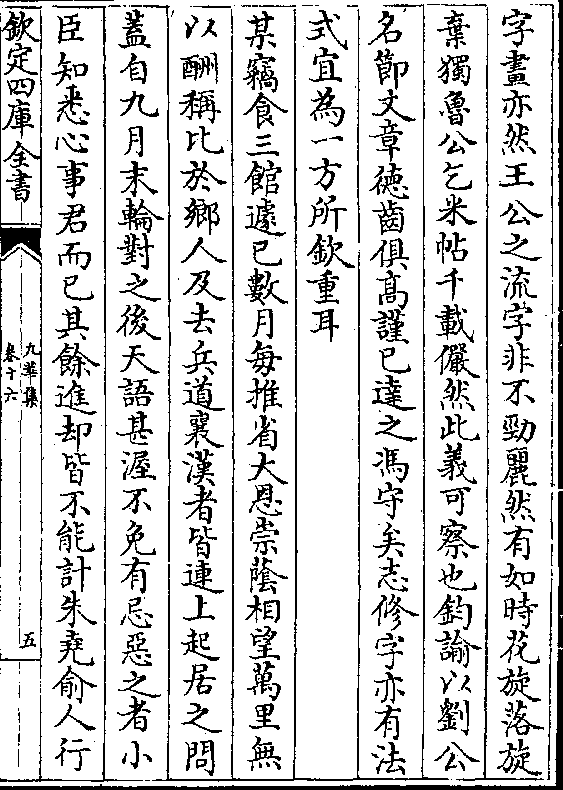 字畫亦然王公之流字非不勁麗然有如時花旋落旋
棄獨魯公乞米帖千載儼然此義可察也鈞諭以劉公
名節文章德齒俱髙謹已達之馮守矣志修字亦有法
式宜為一方所欽重耳
某竊食三館遽已數月每推省大恩崇蔭相望萬里無
以酬稱比於鄉人及去兵道襄漢者皆連上起居之問
蓋自九月末輪對之後天語甚渥不免有忌惡之者小
臣知悉心事君而已其餘進却皆不能計朱堯俞人行
欽定四庫全書
九華集
卷十六
五